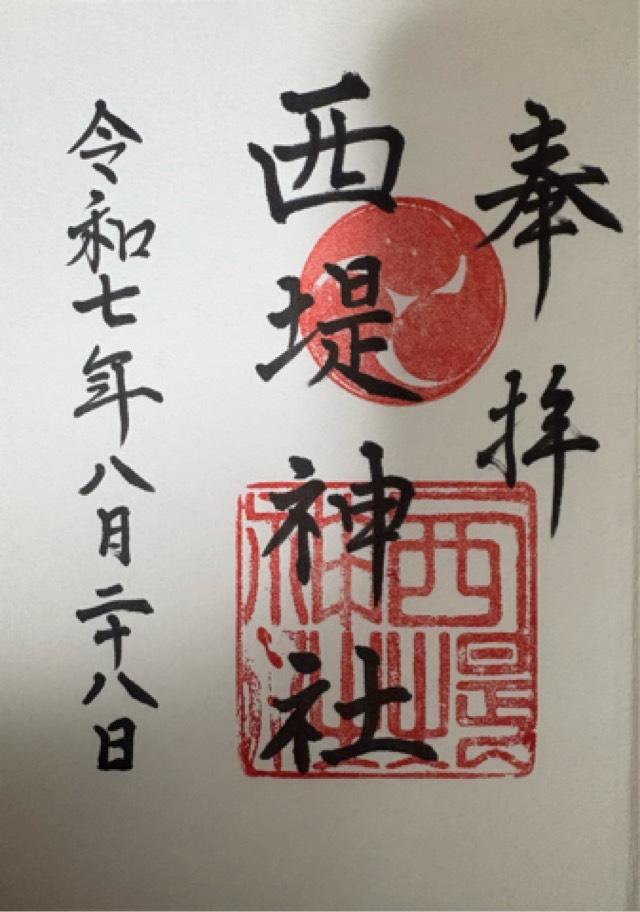 奉拝
西堤神社
令和七年八月二十八日
西堤神社